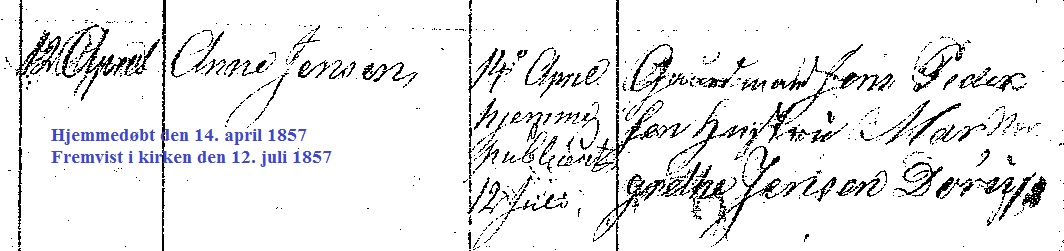 12 April
Anne Jensen
14de April
hjemme
publiceret
12 Juli.
Gaardmand Jens Peder
sen Hustru Mar
grethe Jensen Dørup
Hjemmedøbt den 14. april 1857
Fremvist i kirken den 12. juli 1857